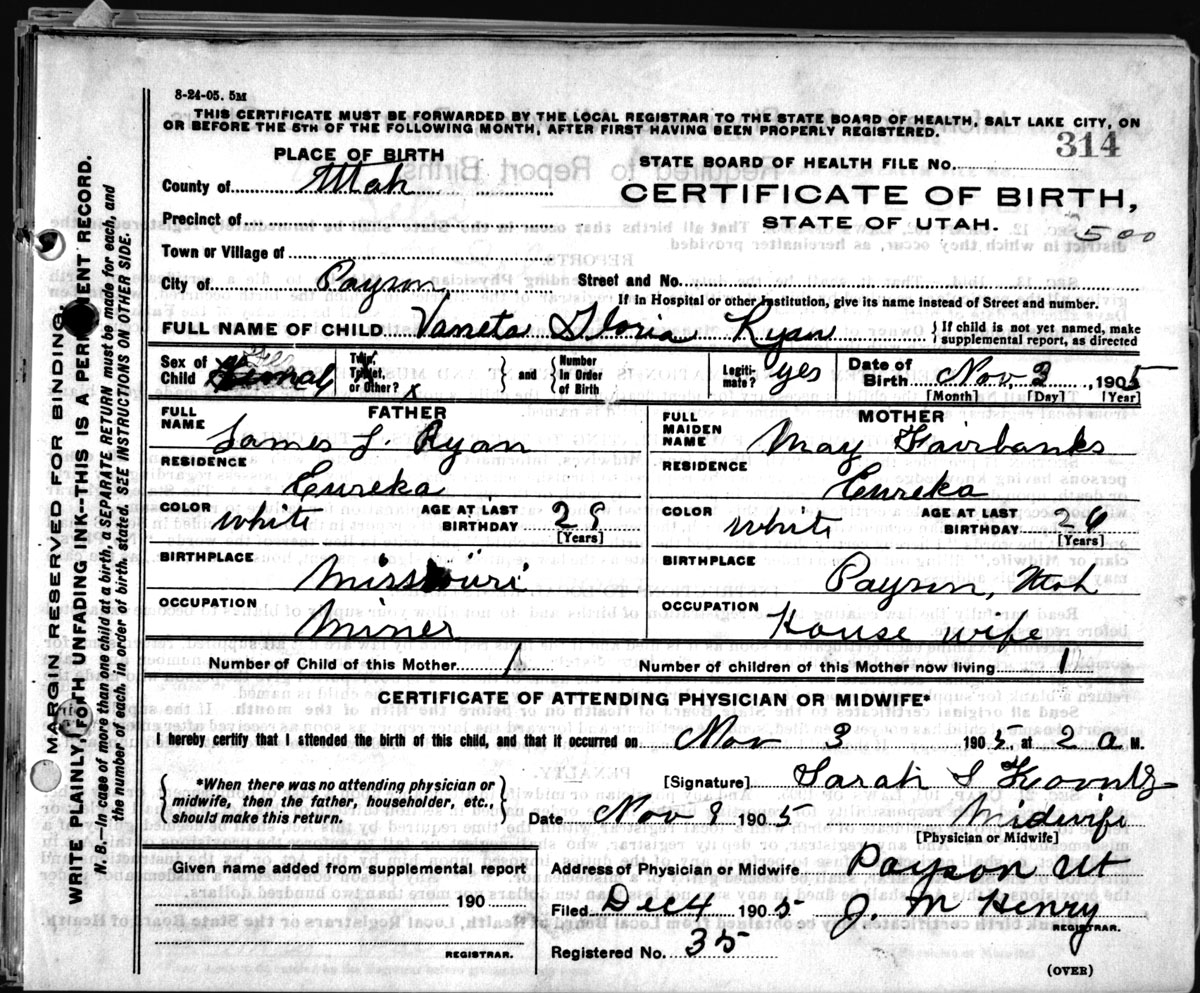 8-24-05. 5M
THIS CERTIFICATE MUST BE FORWARDED BY THE LOCAL REGISTRAR TO THE STATE BOARD OF HEALTH, SALT LAKE CITY, ON
OR BEFORE THE 5TH OF THE FOLLOWING MONTH, AFTER FIRST HAVING BEEN PROPERLY REGISTERED.
314
PLACE OF BIRTH
STATE BOARD OF HEALTH FILE NO.
County of Utah
CERTIFICATE OF BIRTH,
Precinct of
STATE OF UTAH.
500
Town or Village of
City of Payson Street and No.
If in Hospital or other Institution, give its name instead of Street and number.
FULL NAME OF CHILD Vaneta Gloria Ryan { If child is not yet named, make
supplemental report, as directed
Sex of Child Female
Twin, Triplet, or Other?
and
Number in Order of Birth
Legitimate? yes
Date of Birth Nov 3, 1905
[Month] [Day] [Year]
FATHER
FULL NAME James L. Ryan
RESIDENCE Eureka
COLOR White
AGE AT LAST BIRTHDAY 29
[Years]
BIRTHPLACE Missouri
OCCUPATION Miner
MOTHER
FULL MAIDEN NAME May Fairbanks
RESIDENCE Eureka
COLOR White
AGE AT LAST BIRTHDAY 26
[Years]
BIRTHPLACE Payson, Utah
OCCUPATION House wife
Number of Child of this Mother 1 Number of children of this Mother now living 1
CERTIFICATE OF ATTENDING PHYSICIAN OR MIDWIFE*
I hereby certify that I attended the birth of this child, and that it occurred on Nov 3 1905, at 2 a M.
*When there was no attending physician or
midwife, then the father, householder, etc.,
should make this return.
[Signature] Sarah S Koontz
Date Nov 9 1905 Midwife
[Physician or Midwife]
Given name added from supplemental report
190
REGISTRAR.
Address of Physician or Midwife Payson Ut
Filed Dec 4 1905 J. M Henry
REGISTRAR.
Registered No. 35
(OVER)
MARGIN RESERVED FOR BINDING.
WRITE PLAINLY, WITH UNFADING INK--THIS IS A PERMANENT RECORD.
N. B.--In case of more than one child at a birth, a SEPARATE RETURN must be made for each, and
the number of each, in order of birth, stated. SEE INSTRUCTIONS ON OTHER SIDE.